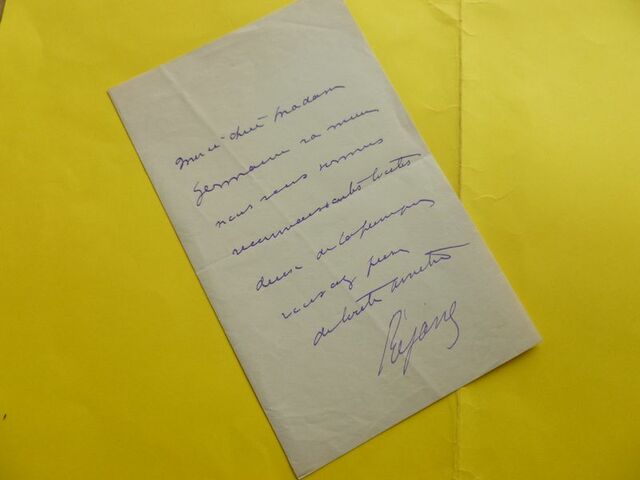 Merci chère Madame
Germaine va mieux
nous vous sommes
reconnaissantes toutes
deux de la pensée
vous avez
de votre
Réjane